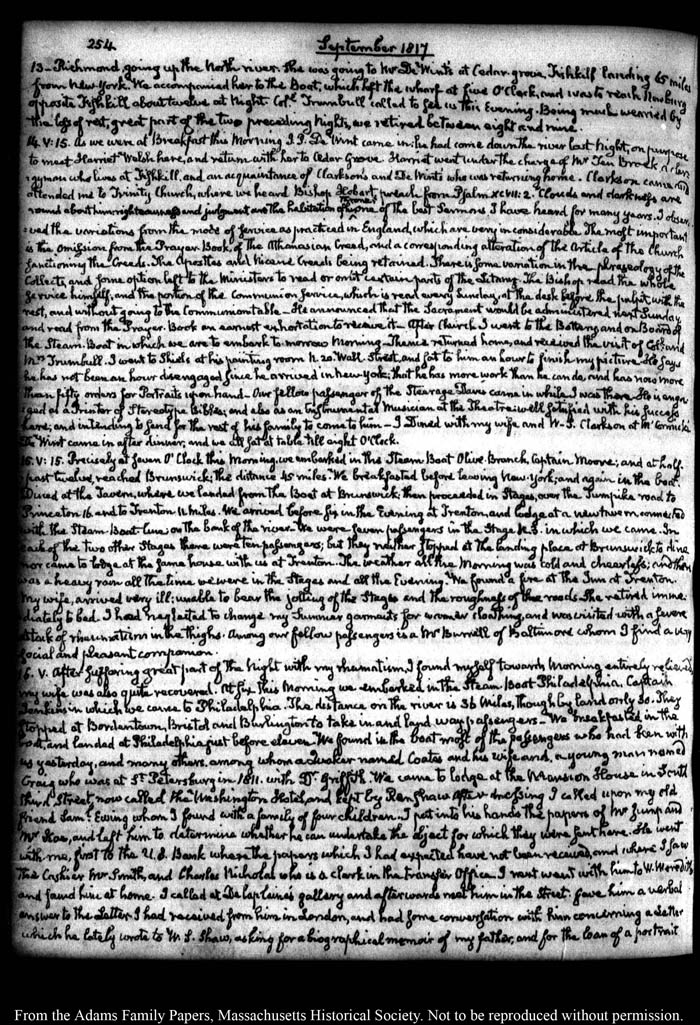 254
September 1817
13- Richmond, going up the North river. She was going to Mr De Wint's at Cedar grove, Fishkill landing 65 miles
from New York. We accompanied her to the Boat, which left the wharf at five O'Clock, and was to reach Newburg
opposite Fishkill about twelve at Night. Coll. Trumbull called to see us this Evening. Being much wearied by
the loss of rest, great part of the two preceding Nights, we retired between eight and nine.
14. V:15. As we were at Breakfast this Morning J. P. De Wint came in: he had come down the river last Night, on purpose
to meet Harriet Welsh here, and return with her to Cedar Grove. Harriet went under the charge of Mr Ten Broek a cler-
gyman who lives at Fishkill, and an acquaintance of Clarkson's and De Wint's who was returning home. Clarkson came and
attended me to Trinity Church, where we heard Bishop Hobart, preach from Psalm XCVII: 2. Clouds and darkness are
round about him: righteousness and judgment are the habitation of his throne one of the best Sermons I have heard for many years. I obser-
ved the variations from the mode of service as practiced in England, which are very inconsiderable. The most important
is the omission from the Prayer Book, of the Athanasian Creed, and a corresponding alteration of the Article of the Church
sanctioning the Creeds. The Apostles and Nicene Creeds being retained. There is some variation in the phraseology of the
Collects, and some option left to the Ministers to read or omit certain parts of the Litany. The Bishop read the whole
service himself, and the portion of the Communion service, which is read every Sunday, at the desk before the pulpit, with the
rest, and without going to the Communion table_ He announced that the Sacrament would be administered next Sunday,
and read from the Prayer Book an earnest exhortation to receive it_ After Church I went to the Battery, and on Board of
the Steam Boat in which we are to embark to morrow Morning_ Thence returned home, and received the visit of Coll. and
Mrs Trumbull. I went to Shiels at his painting room N. 20. Wall Street, and sat to him an hour to finish my picture. He says
he has not been an hour disengaged since he arrived in New York; that he has more work than he can do, and has now more
than fifty orders for Portraits upon hand_ Our fellow passenger of the Steerage Davis came in while I was there. He is enga-
ged as a Printer of Stereotype Bibles; and also as an Instrumental Musician at the Theatre: well satisfied with his success
here; and intending to send for the rest of his family to come to him_ I Dined with my wife and W. S. Clarkson at McCormick's
De Wint came in after dinner; and we all sat at table till eight O'Clock.
15. V:15. Precisely at seven O'Clock this Morning, we embarked in the Steam Boat Olive Branch, Captain Moore; and at half
past twelve, reached Brunswick; the distance 45 miles. We breakfasted before leaving New-York; and again in the boat.
Dined at the Tavern, where we landed from the Boat at Brunswick; then proceeded in Stages, over the Turnpike road to
Princeton 16. and to Trenton 11 miles. We arrived before six in the Evening at Trenton, and lodge at a new tavern connected
with the Steam-Boat line on the bank of the river_ We were seven passengers in the Stage N. 3. in which we came. In
each of the two other Stages there were ten passengers; but they neither stopped at the landing place at Brunswick to dine
nor came to lodge at the same house with us at Trenton. The weather all the Morning was cold and cheerless; and there
was a heavy rain all the time we were in the Stages and all the Evening. We found a fire at the Inn at Trenton.
My wife, arrived very ill; unable to bear the jolting of the Stages and the roughness of the roads. She retired imme-
diately to bed. I had neglected to change my Summer garments for warmer cloathing, and was visited with a severe
attack of rheumatism in the thighs. Among our fellow passengers is a Mr Burnell of Baltimore whom I find a very
social and pleasant companion.
16. V. After suffering great part of the Night with my rheumatism, I found myself towards Morning entirely relieved
my wife was also quite recovered. At six this Morning we embarked in the Steam-Boat Philadelphia, Captain
Jenkins in which we came to Philadelphia. The distance on the river is 36 Miles, though by land only 30. They
stopped at Bordentown, Bristol and Burlington to take in and land way passengers_ We breakfasted in the
boat, and landed at Philadelphia just before eleven. We found in the boat most of the passengers who had been with
us yesterday, and many others, among whom a Quaker named Coates and his wife and, a young man named
Craig who was at St Petersburg in 1811. with Dr. Griffith. We came to lodge at the Mansion House in South
third Street, now called the Washington Hotel, and kept by Renshaw. After dressing I called upon my old
friend Saml. Ewing whom I found with a family of four children. I put into his hands the papers of Mr
and left him to determine whether he can undertake the object for which they were sent here. He went
with me, first to the U.S. Bank where the papers which I had expected have not been received, and where I saw
the Cashier Mr Smith, and Charles Nicholas who is a clerk in the transfer Office. I next went with him to W. Meredith
and found him at home. I called at Delaplaine's gallery and afterwards met him in the Street. Gave him a verbal
answer to the Letter I had received from him in London, and had some conversation with him concerning a Letter
which he lately wrote to W. S. Shaw, asking for a biographical memoir of my father, and for the loan of a portrait
From the Adams Family Papers, Massachusetts Historical Society. Not to be reproduced without permission.